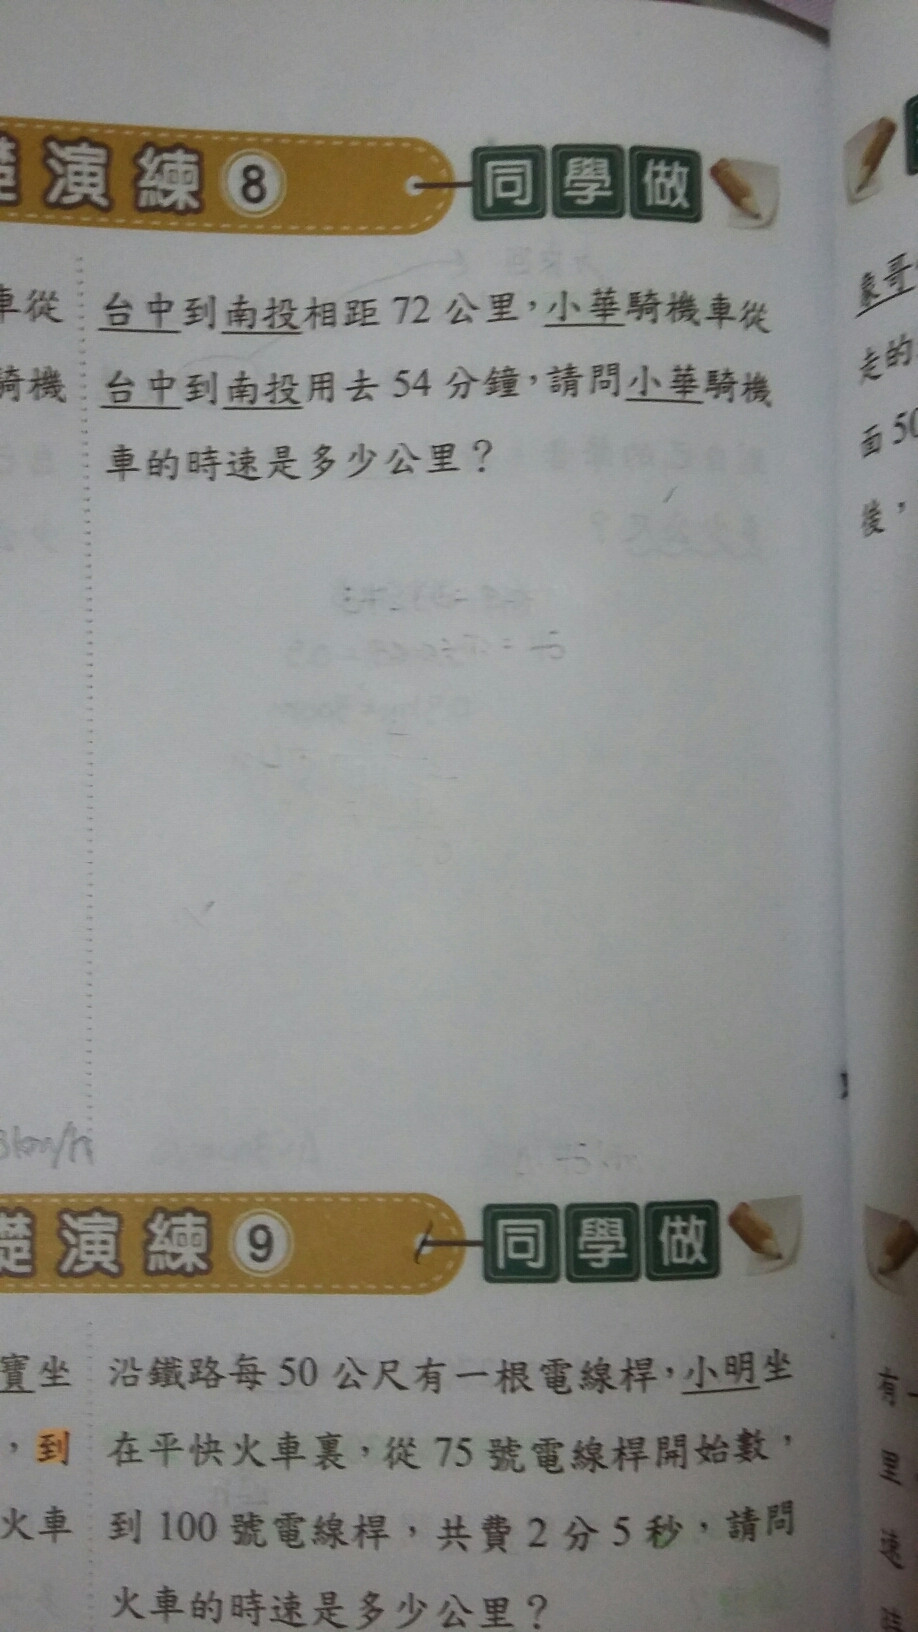 演練 8 同學做
車從
騎機
台中到南投相距 72 公里，小華騎機車從
台中到南投用去 54 分鐘，請問小華騎機
車的時速是多少公里？
象哥
走的
面 50
後，
km/h
礎演練 9 同學做
寶坐
，到
火車
沿鐵路每 50 公尺有一根電線桿，小明坐
在平快火車裏，從 75 號電線桿開始數，
到 100 號電線桿，共費 2 分 5 秒，請問
火車的時速是多少公里？
有一
里
速
時